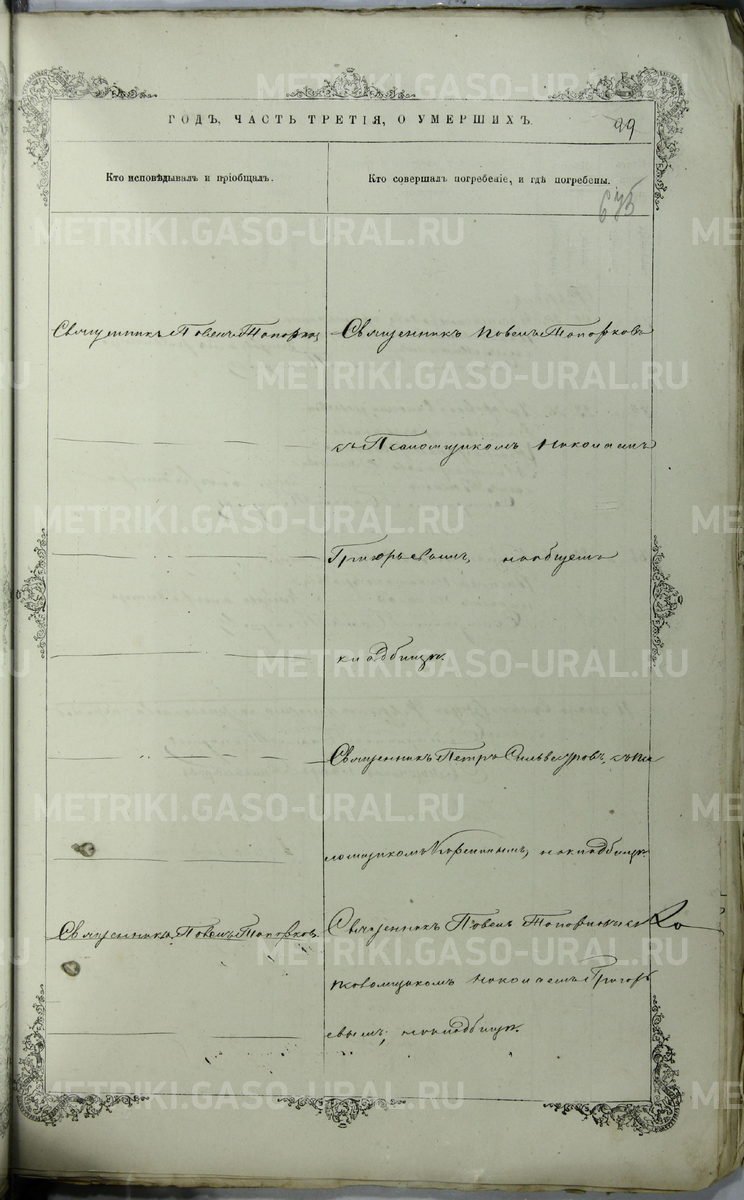 ГОДЪ, ЧАСТЬ ТРЕТІЯ, О УМЕРШИХЪ.
99
Кто исповѣдывалъ и пріобщалъ.
Кто совершалъ погребеніе, и гдѣ погребены.
Священникъ Павелъ Топорковъ
Священникъ Павелъ Топорковъ
съ Псаломщикомъ Николаемъ
Григорьевымъ, на общемъ
кладбищѣ.
Священникъ Петръ Сильвестровъ съ Пса
ломщикомъ, на кладбищѣ.
Священникъ Павелъ Топорковъ
Священникъ Павелъ Топорковъ съ
Псаломщикомъ Николаемъ Григорь
евымъ, на кладбищѣ.
METRIKI.GASO-URAL.RU